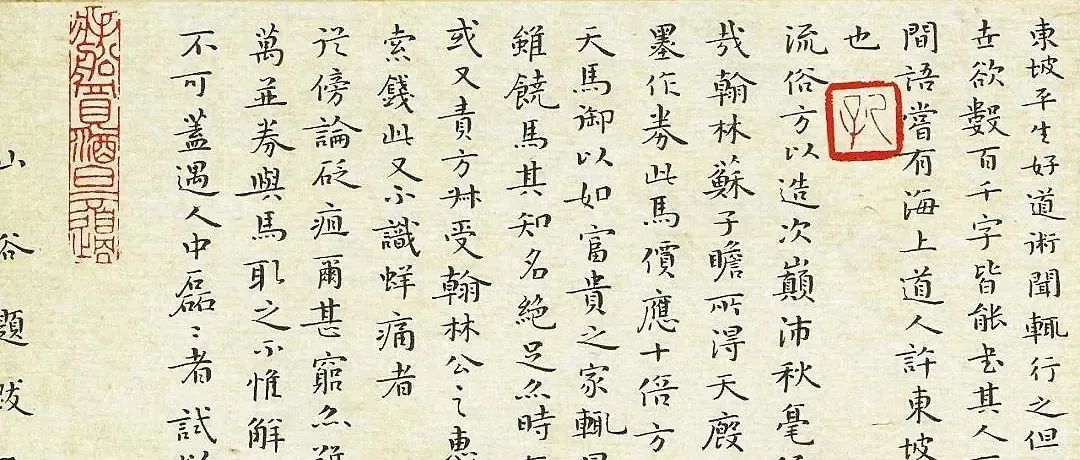 東坡平生好道術聞輒行之但
世欲數百千字皆能書其人
間語嘗有海上道人許東坡
也
流俗方以造次巔沛秋毫
哉翰林蘇子瞻所得天廄
墨作券此馬價應十倍方
天馬御以如富貴之家輒
雖饒馬其知名絕足亦時
或又責方叔受翰林公之惠
索錢此又不識蛘痛者
從傍論砭疽爾甚窮亦
萬並券與馬取之不惟解
不可蓋遇人中磊〻者試以
山谷題跋